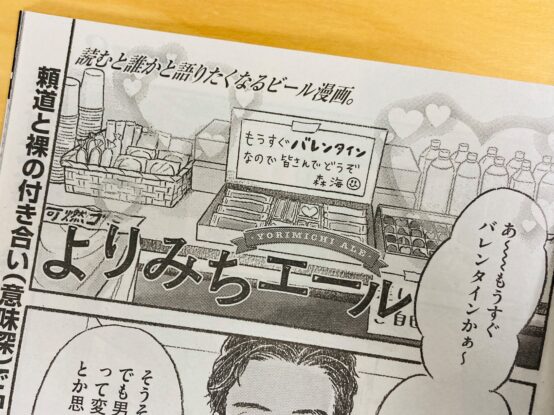 読むと誰かと語りたくなるビール漫画。
もうすぐバレンタイン
なので皆さんでどうぞ
森海
YORIMICHI ALE
よりみちエール
頼道と裸の付き合い(意味深)で
あ〜〜もうすぐ
バレンタインかぁ〜
可燃
そうそ
でも男
って変
とか思